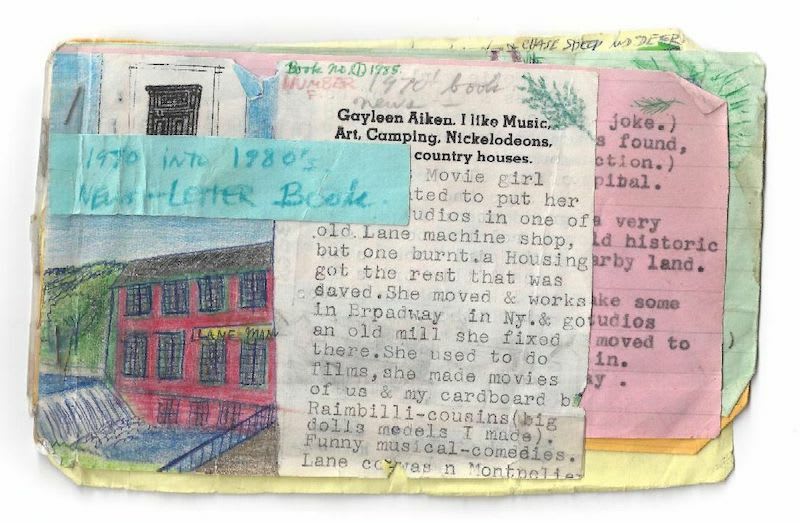 & CHASE SHEEP AND DEER
Book no. ① 1985.
NUMBER
1970's book
news —
Gayleen Aiken. I like Music,
Art, Camping, Nickelodeons,
country houses.
1970 INTO 1980's
NEWS-LETTER BOOK.
Movie girl
ted to put her
udios in one of
old.Lane machine shop,
but one burnt.a Housing
got the rest that was
saved.She moved & works
in Broadway in Ny.& go
an old mill she fixed
there.She used to do
films,she made movies
of us & my cardboard b
Raimbilli-cousins(big
dolls medels I made).
Funny musical-comedies.
Lane co was n Montpelier
LANE MAN
joke.)
s found,
ction.)
pital.
a very
ld historic
arby land.
ake some
tudios
moved to
)
in.
ay .